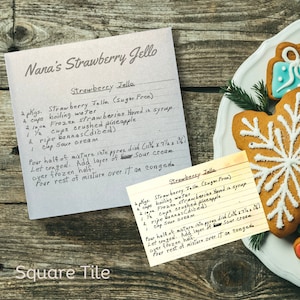 Nana's Strawberry Jello
Strawberry Jello
2 pkgs. Strawberry Jello (Sugar Free)
2 cups boiling water
2 Frozen strawberries thawed in syrup
1 cups crushed pineapple
2 ripe bananas (diced)
1 cup sour cream
Pour half of mixture into pyrex dish
Let congeal. Add layer of sour cream
over frozen half.
Pour rest of mixture over it to congeal.
Strawberry Jello
2 pkgs. Strawberry Jello (Sugar Free)
2 cups boiling water
Frozen strawberries thawed in syrup
cups crushed pineapple
ripe bananas (diced)
1 cup sour cream
Pour half of mixture into pyrex dish
Let congeal. Add layer of sour cream
over frozen half.
Pour rest of mixture over it to congeal.
Square Tile